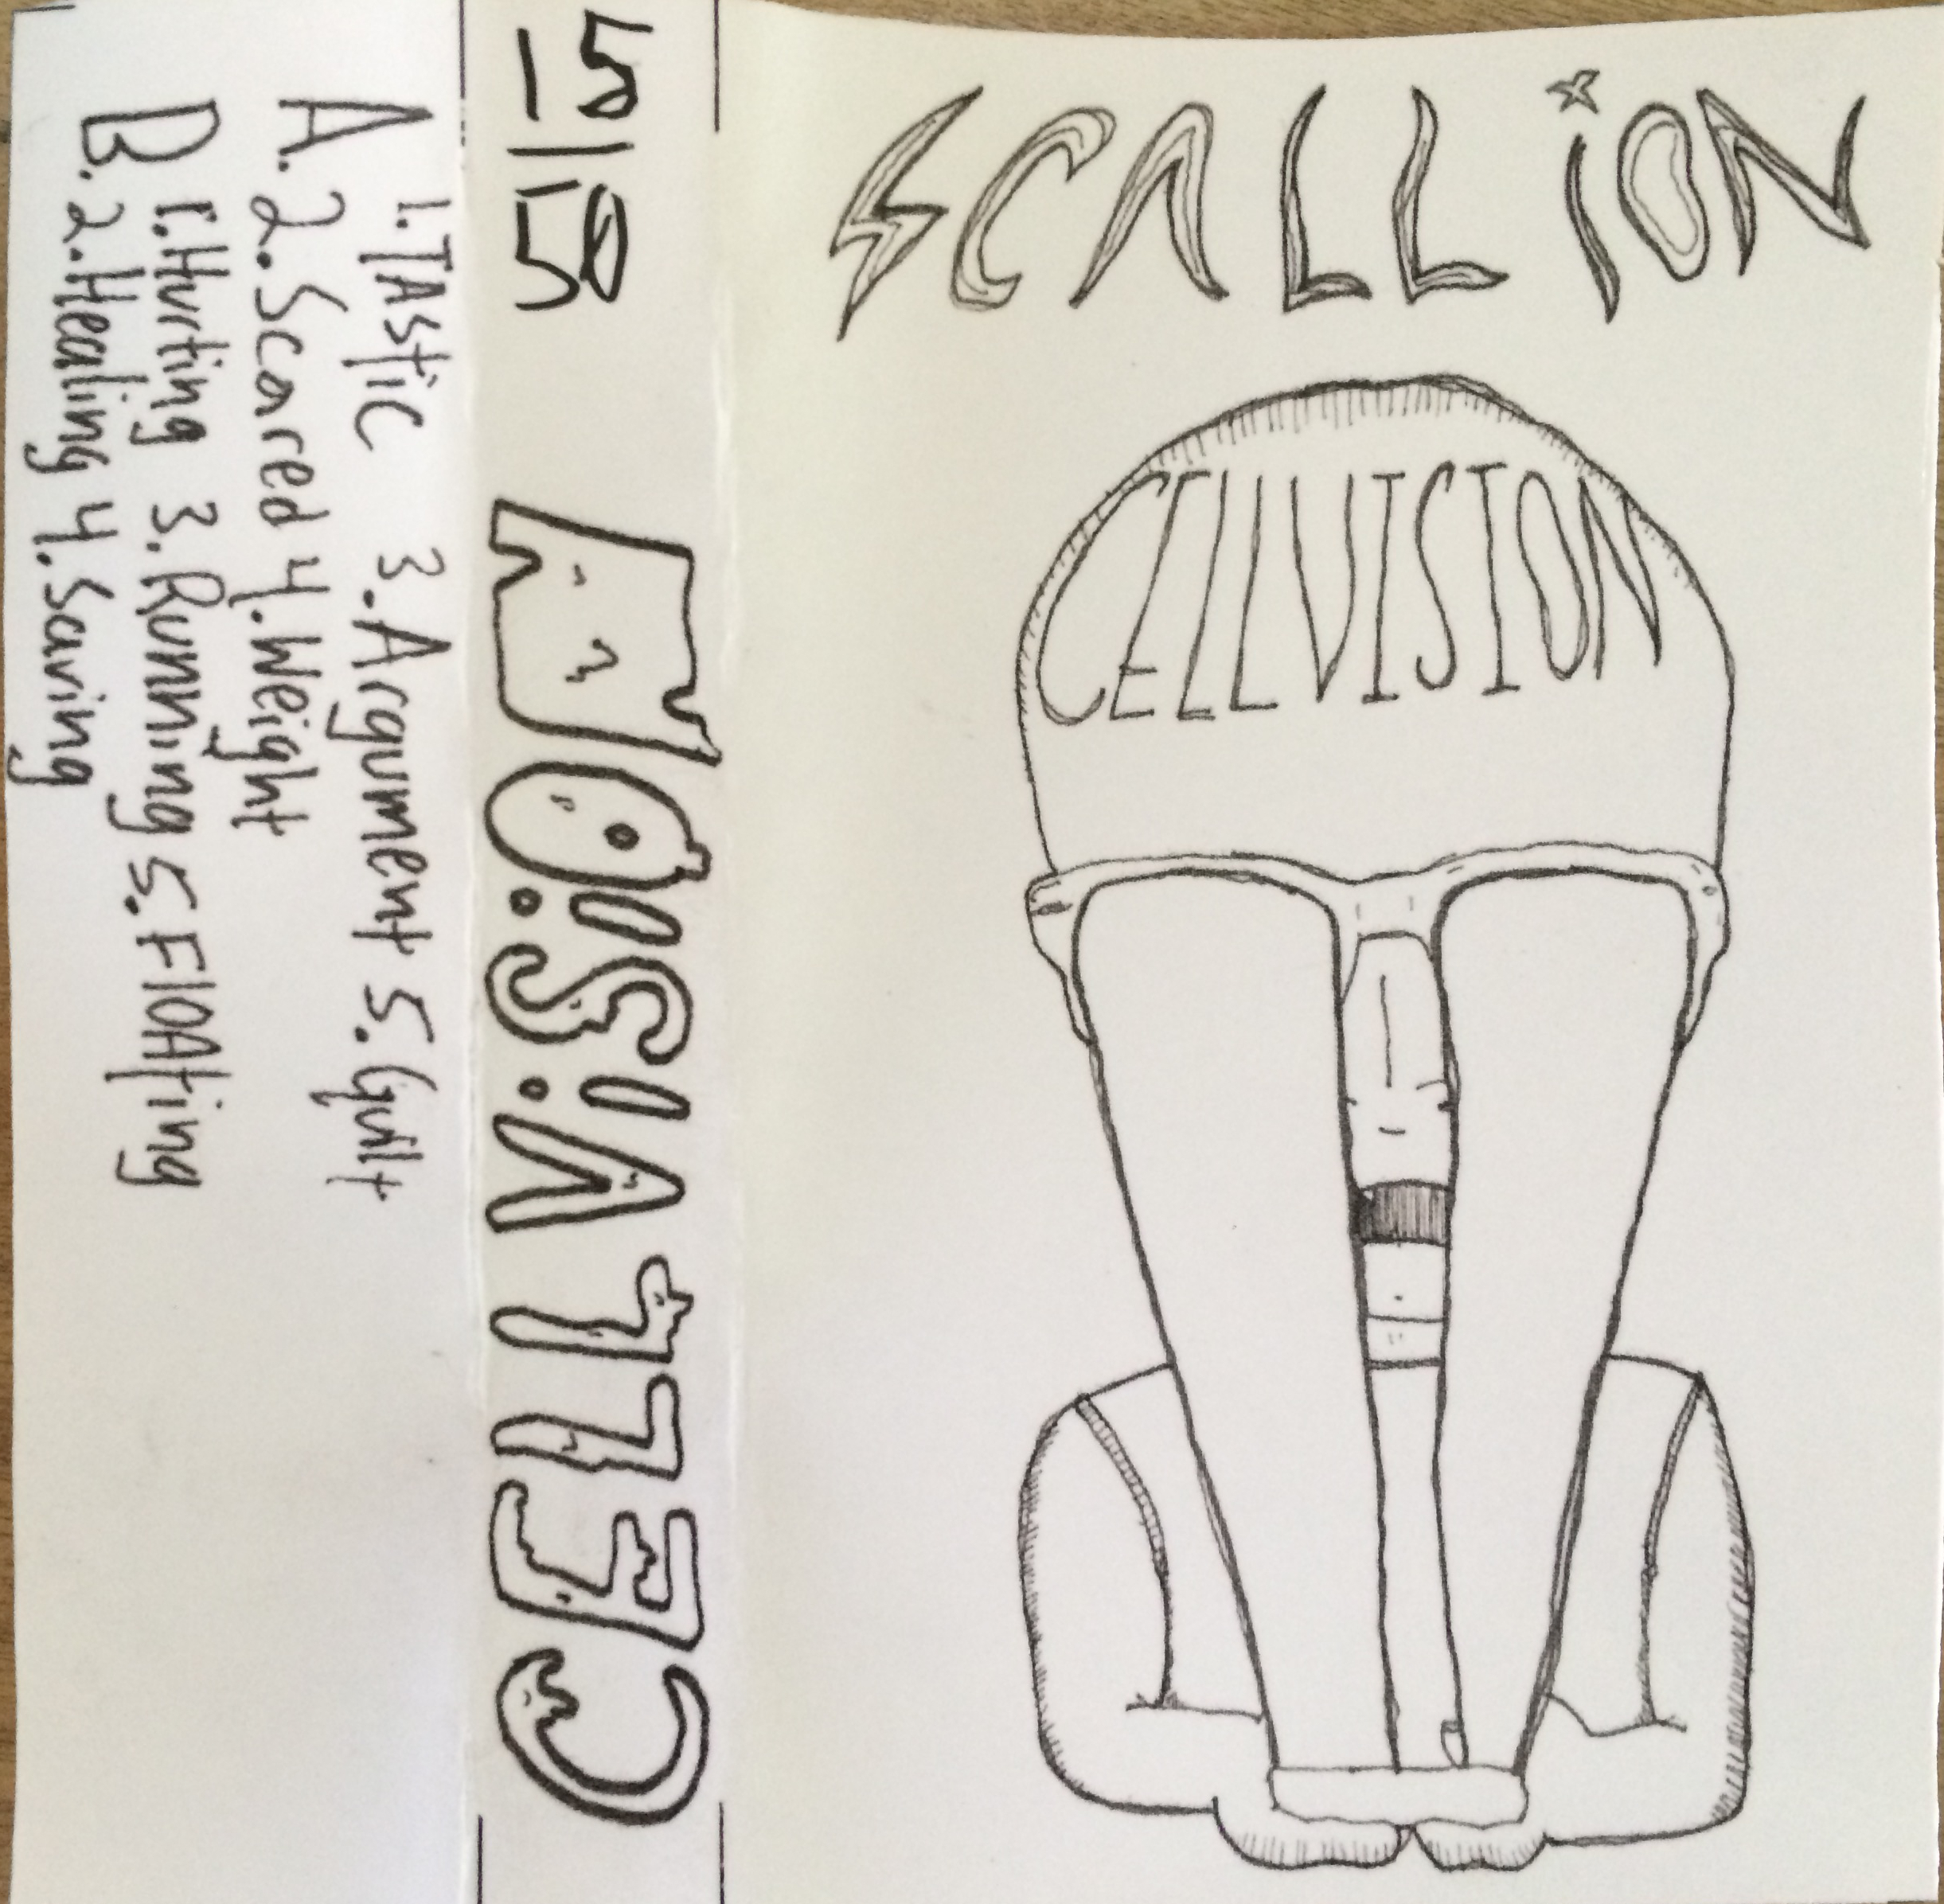 SCALLiON
CELLVISION
15
50
CELLViSiON
A. 1. TAStiC 3. Argument 5. Guilt
2. Scared 4. Weight
B. 1. Hurting 3. Running 5. FlOAting
2. Healing 4. Saving